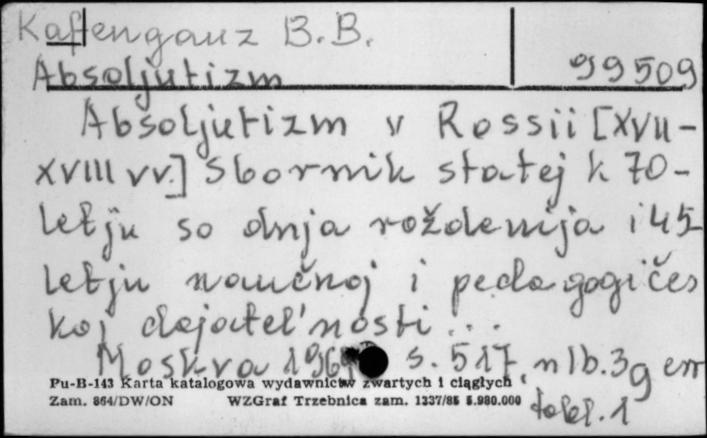 Kaftengauz B.B.
Absoljutizm 99509
Absoljutizm v Rossii [XVII-
XVIII vv.] Sbornik statej k 70-
letju so dnja roždenija i 45
letju naučnoj i pedagogičes
koj dejatel'nosti...
Moskva s. 517, nlb. 3g err
Pu-B-143 Karta katalogowa wydawnictw zwartych i ciągłych
Zam. 864/DW/ON WZGraf Trzebnica zam. 1337/85 5.980.000
tabl. 1